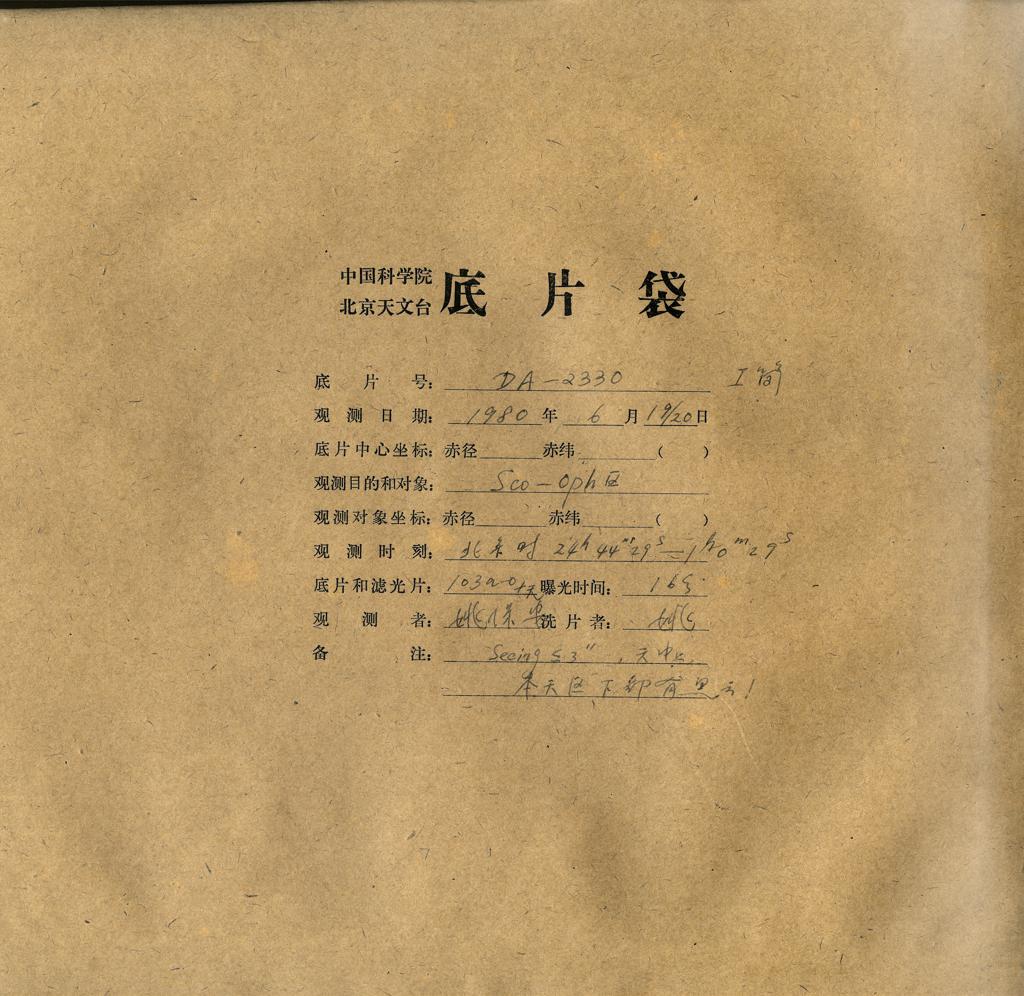 中国科学院
北京天文台 底片袋
底片号: DA-2330 I 筒
观测日期: 1980年 6月 19/20日
底片中心坐标: 赤径 赤纬 ( )
观测目的和对象: Sco-Oph区
观测对象坐标: 赤径 赤纬 ( )
观测时刻: 北京时 24h 44m 29s — 1h 0m 29s
底片和滤光片: 103a-O+无 曝光时间: 16
观测者: 姚保 洗片者: 姚
备注: Seeing ≤ 3",
本天区下部有